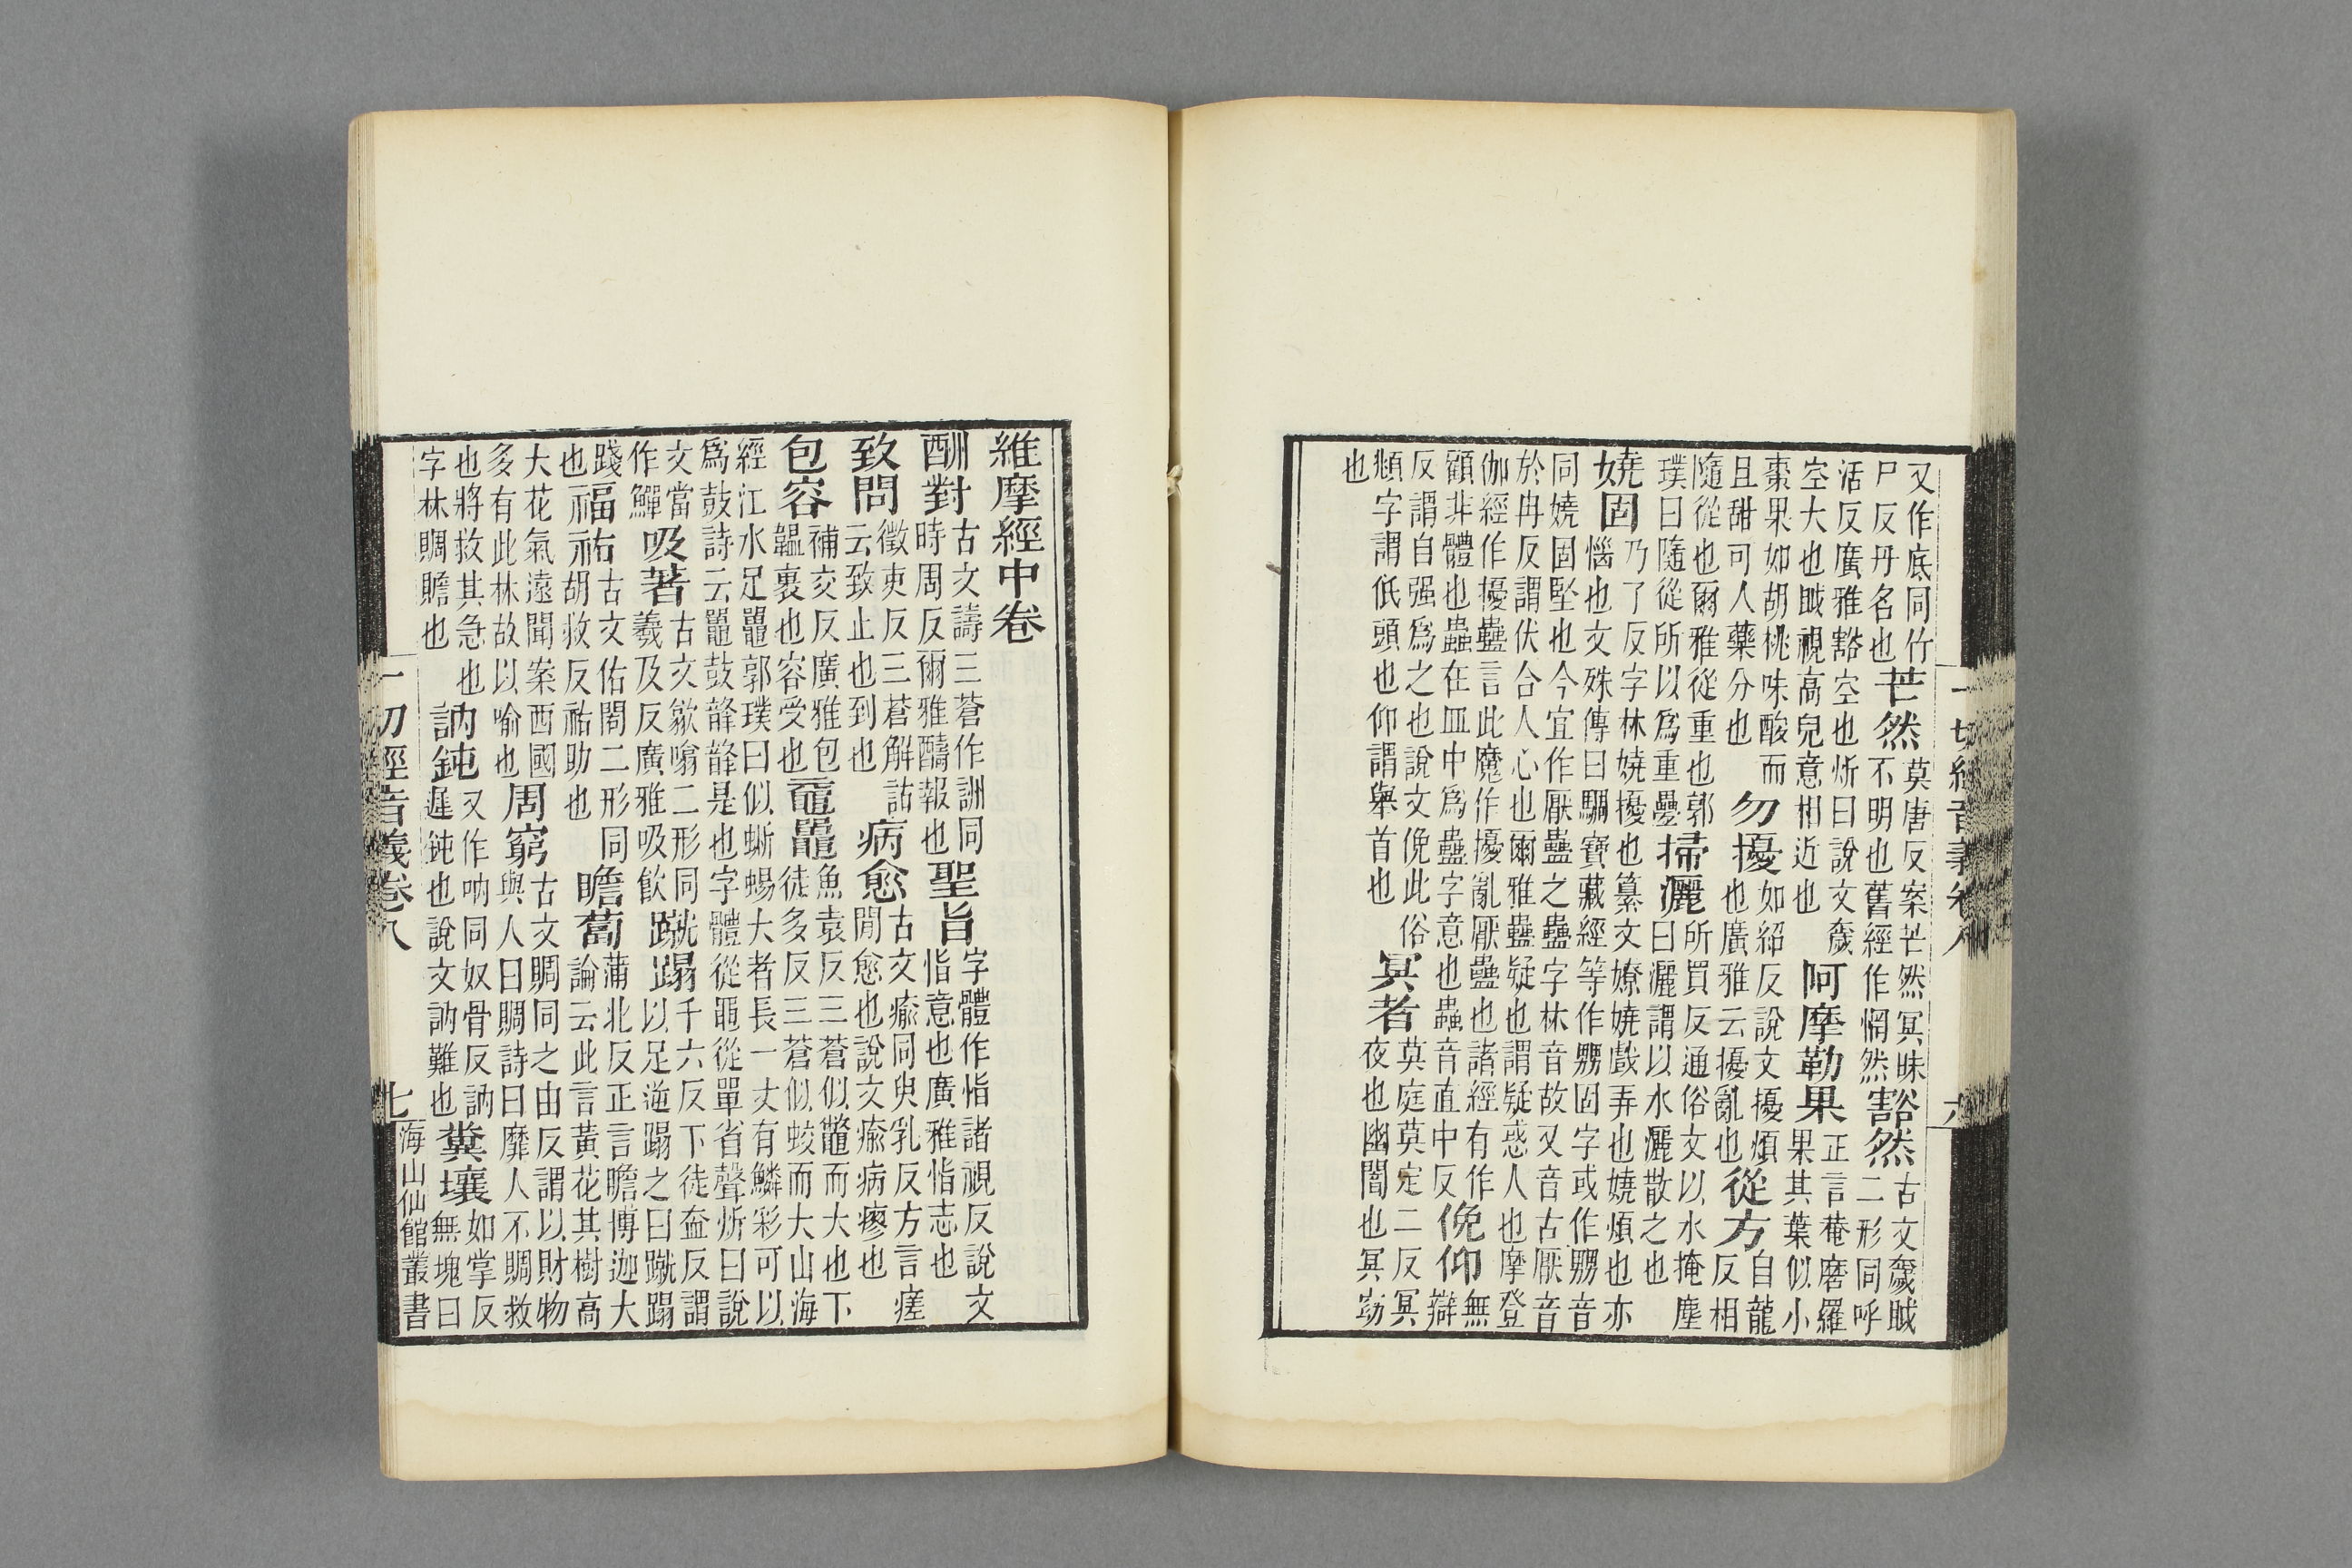 又作底同竹尸反丹名也芒然莫唐反案芒然冥昧不明也舊經作惘然豁然古文奯眓二形同呼
活反廣雅豁空也炘曰說文奯空大也眓視高皃意相近也阿摩勒果正言菴磨羅果其葉似小
棗果如胡桃味酸而且甜可人藥分也勿擾如紹反說文擾煩也廣雅云擾亂也從方自龍反相
隨從也爾雅從重也郭璞曰隨從所以爲重疊掃灑所買反通俗文以水掩塵曰灑謂以水灑散之也
嬈固乃了反字林嬈擾也纂文嫽嬈戲弄也嬈煩也亦惱也文殊傳曰驅寶藏經等作嬲固字或作嬲音
同嬈固堅也今宜作厭蠱之蠱字林音故又音古厭音於冉反謂伏合人心也爾雅蠱疑也謂疑惑人也摩登
伽經作擾蠱言此魔作擾亂厭蠱也諸經有作顧非體也蟲在皿中爲蠱字意也蟲音直中反俛仰無辯
反謂自强爲之也說文俛此俗頫字謂低頭也仰謂舉首也冥者莫庭莫定二反冥夜也幽闇也冥窈
也
維摩經中卷
酬對古文譸三蒼作詶同時周反爾雅醻報也聖旨字體作恉諸視反說文恉意也廣雅恉志也
致問徵吏反三蒼解詁云致止也到也病愈古文瘉同臾乳反方言瘥閒愈也說文瘉病瘳也
包容補交反廣雅包韞裏也容受也黿鼉魚袁反三蒼似鼈而大也下徒多反三蒼似蛟而大山海
經江水足鼉郭璞曰似蜥蜴大者長一丈有鱗彩可以爲鼓詩云鼉鼓韸韸是也字體從黽從單省聲炘曰說
文當作鱓吸著古文歙噏二形同羲及反廣雅吸飲蹴蹋千六反下徒盍反謂以足逆蹋之曰蹴蹋
踐也福祐古文佑閤二形同胡救反祐助也瞻蔔蒲北反正言瞻博迦大論云此言黃花其樹高
大花氣遠聞案西國多有此林故以喻也周窮古文賙同之由反謂以財物與人曰賙詩曰靡人不賙救
也將救其急也字林賙贍也訥鈍又作吶同奴骨反訥遲鈍也說文訥難也糞壤如掌反無塊曰
一切經音義卷八 七 海山仙館叢書